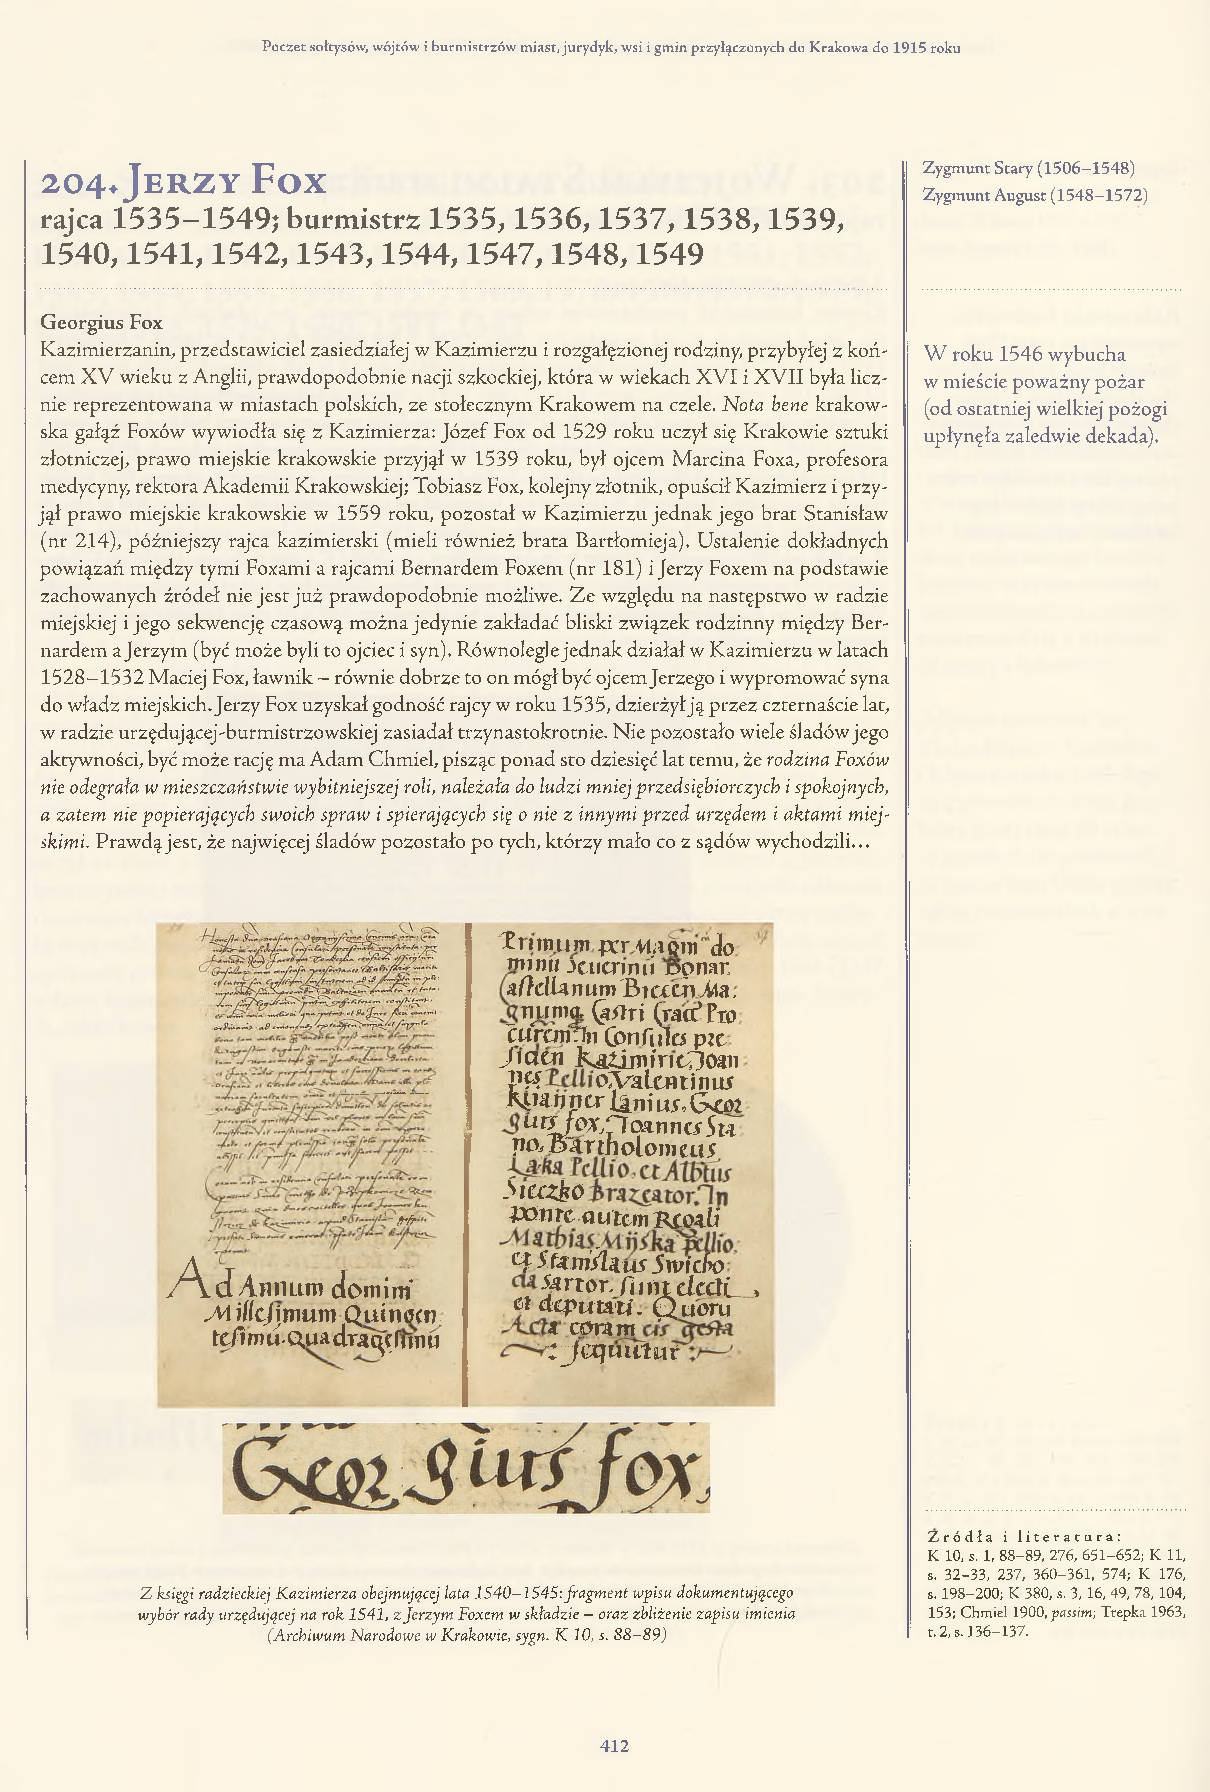 Poczet sołtysów, wójtów i burmistrzów miast, jurydyk, wsi i gmin przyłączonych do Krakowa do 1915 roku
204. Jerzy Fox
rajca 1535–1549; burmistrz 1535, 1536, 1537, 1538, 1539,
1540, 1541, 1542, 1543, 1544, 1547, 1548, 1549
Georgius Fox
Kazimierzanin, przedstawiciel zasiedziałej w Kazimierzu i rozgałęzionej rodziny, przybyłej z koń-
cem XV wieku z Anglii, prawdopodobnie nacji szkockiej, która w wiekach XVI i XVII była licz-
nie reprezentowana w miastach polskich, ze stołecznym Krakowem na czele. Nota bene krakow-
ska gałąź Foxów wywiodła się z Kazimierza: Józef Fox od 1529 roku uczył się Krakowie sztuki
złotniczej, prawo miejskie krakowskie przyjął w 1539 roku, był ojcem Marcina Foxa, profesora
medycyny, rektora Akademii Krakowskiej; Tobiasz Fox, kolejny złotnik, opuścił Kazimierz i przy-
jął prawo miejskie krakowskie w 1559 roku, pozostał w Kazimierzu jednak jego brat Stanisław
(nr 214), późniejszy rajca kazimierski (mieli również brata Bartłomieja). Ustalenie dokładnych
powiązań między tymi Foxami a rajcami Bernardem Foxem (nr 181) i Jerzy Foxem na podstawie
zachowanych źródeł nie jest już prawdopodobnie możliwe. Ze względu na następstwo w radzie
miejskiej i jego sekwencję czasową można jedynie zakładać bliski związek rodzinny między Ber-
nardem a Jerzym (być może byli to ojciec i syn). Równolegle jednak działał w Kazimierzu w latach
1528–1532 Maciej Fox, ławnik – równie dobrze to on mógł być ojcem Jerzego i wypromować syna
do władz miejskich. Jerzy Fox uzyskał godność rajcy w roku 1535, dzierżył ją przez czternaście lat,
w radzie urzędującej-burmistrzowskiej zasiadał trzynastokrotnie. Nie pozostało wiele śladów jego
aktywności, być może rację ma Adam Chmiel, pisząc ponad sto dziesięć lat temu, że rodzina Foxów
nie odegrała w mieszczaństwie wybitniejszej roli, należała do ludzi mniej przedsiębiorczych i spokojnych,
a zatem nie popierających swoich spraw i spierających się o nie z innymi przed urzędem i aktami miej-
skimi. Prawdą jest, że najwięcej śladów pozostało po tych, którzy mało co z sądów wychodzili...
Ad Annum domini
Millesimum Quingen
tesimū Quadragesimū
Primum per Magm do
minū Seuerinū Bonar
Castellanum Biecen Ma
gnumq Castri Cracc Pro
curem In Consules pre
siden Kazimirie, Joan
nes Pellio, Valentinus
Lanius, Geor
gius fox, Joannes Sta
no, Bartholomeus
Laka Pellio, et Albtus
Sieczko Braxeator. In
ponte autem Regali
Mathias Mijska pellio,
et Stanislaus Swiebo
da Sartor, sunt electi
et deputati. Quorū
Acta coram eis gesta
sequūtur
Georgius fox,
Z księgi radzieckiej Kazimierza obejmującej lata 1540–1545: fragment wpisu dokumentującego
wybór rady urzędującej na rok 1541, z Jerzym Foxem w składzie – oraz zbliżenie zapisu imienia
(Archiwum Narodowe w Krakowie, sygn. K 10, s. 88–89)
Zygmunt Stary (1506–1548)
Zygmunt August (1548–1572)
W roku 1546 wybucha
w mieście poważny pożar
(od ostatniej wielkiej pożogi
upłynęła zaledwie dekada).
Źródła i literatura:
K 10, s. 1, 88–89, 276, 651–652; K 11,
s. 32–33, 237, 360–361, 574; K 176,
s. 198–200; K 380, s. 3, 16, 49, 78, 104,
153; Chmiel 1900, passim; Trepka 1963,
t. 2, s. 136–137.
412